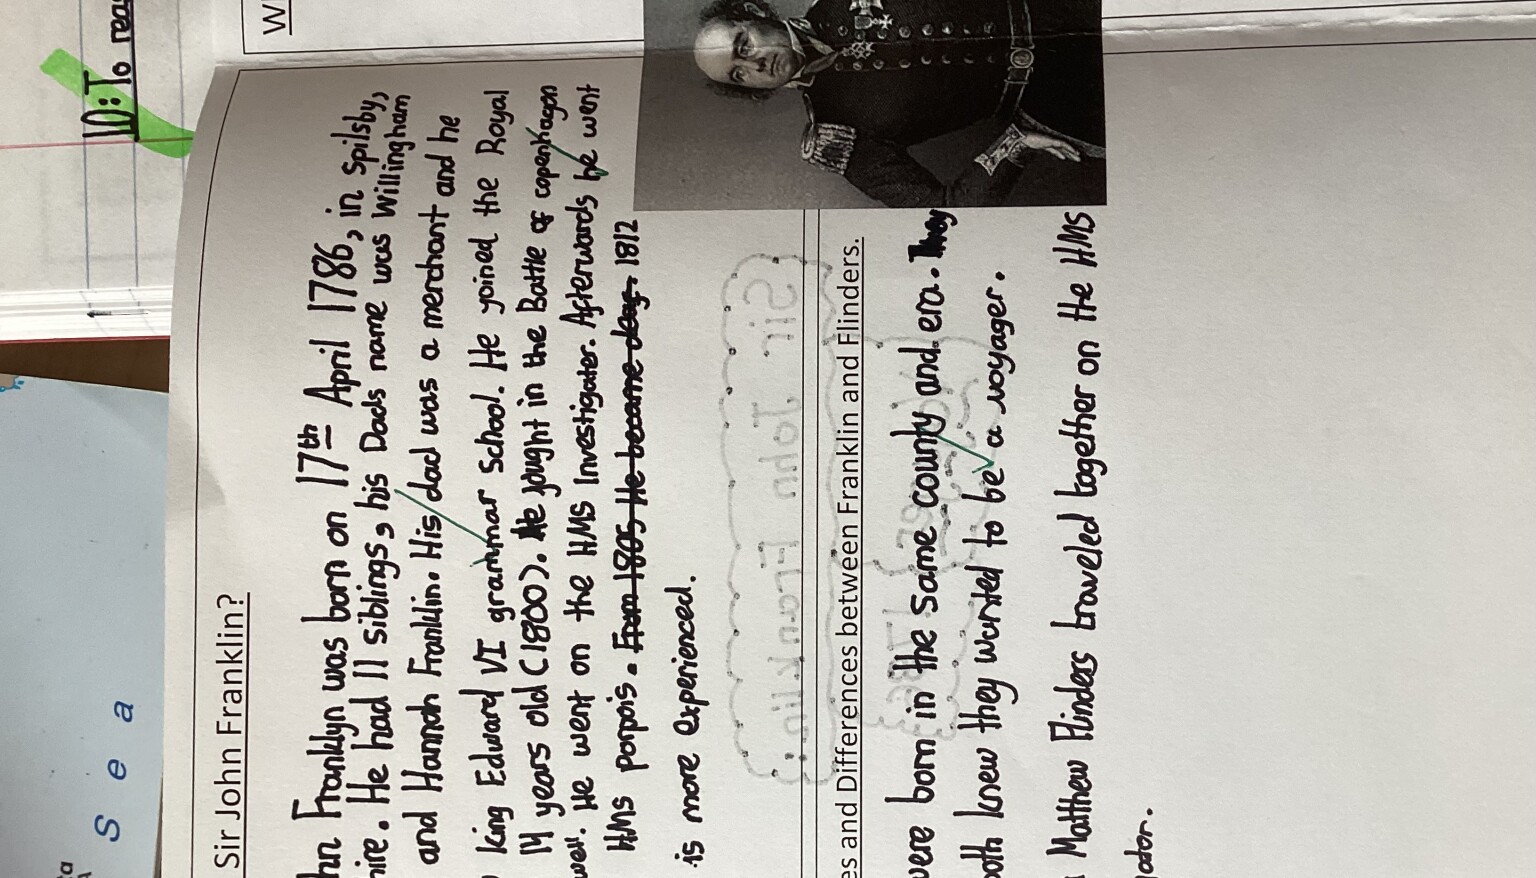 LO: To rea
W
Sir John Franklin?
hn Franklyn was born on 17th April 1786, in Spilsby,
hire. He had 11 siblings, his Dads name was Willingham
and Hannah Franklin. His dad was a merchant and he
king Edward VI grammar school. He joined the Royal
14 years old (1800). He fought in the Battle of copenhagon
well. He went on the HMS Investigater. Afterwards he went
HMS porpois. From 1805 He became deag. 1812
is more experienced.
Sir John Franklin:
es and Differences between Franklin and Flinders.
were born in the same county and era. They
both knew they wanted to be a voyager.
Matthew Flinders traveled together on the HMS
gator.
Sea